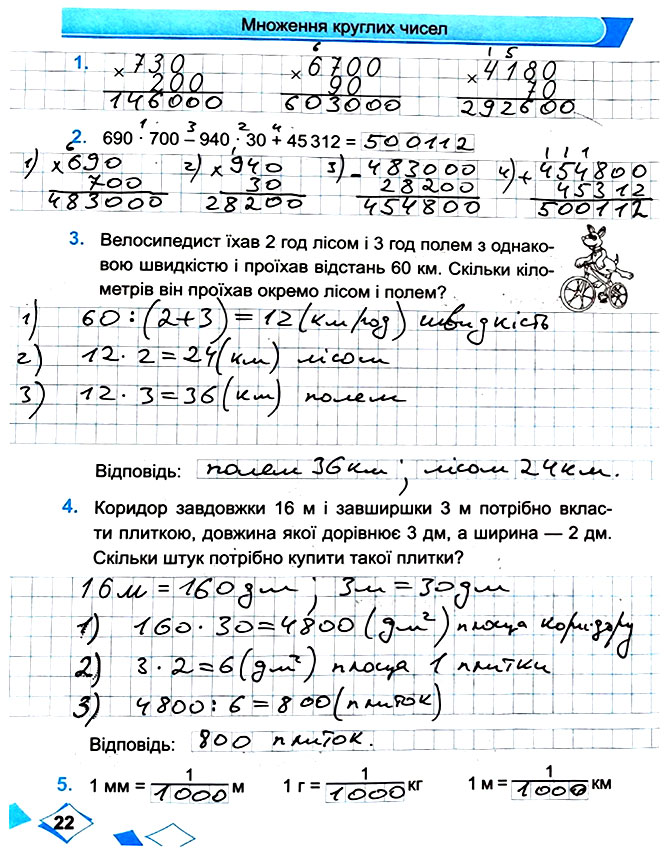 Множення круглих чисел
1. × 730 200 146000
6 × 6700 90 603000
1 5 × 4180 70 292600
2. 690 · 700 – 940 · 30 + 45 312 = 500112
1 3 2 4
1) 6 × 690 700 483000
2) 1 × 940 30 28200
3) - 483000 28200 454800
4) 1 1 1 + 454800 45312 500112
3. Велосипедист їхав 2 год лісом і 3 год полем з однако-
вою швидкістю і проїхав відстань 60 км. Скільки кіло-
метрів він проїхав окремо лісом і полем?
1) 60 : (2+3) = 12 (км/год) швидкість
2) 12 · 2 = 24 (км) лісом
3) 12 · 3 = 36 (км) полем
Відповідь: полем 36 км ; лісом 24 км.
4. Коридор завдовжки 16 м і завширшки 3 м потрібно вклас-
ти плиткою, довжина якої дорівнює 3 дм, а ширина — 2 дм.
Скільки штук потрібно купити такої плитки?
16 м = 160 дм ; 3 м = 30 дм
1) 160 · 30 = 4800 (дм²) площа коридору
2) 3 · 2 = 6 (дм²) площа 1 плитки
3) 4800 : 6 = 800 (плиток)
Відповідь: 800 плиток.
5. 1 мм = 1/1000 м 1 г = 1/1000 кг 1 м = 1/1000 км
22